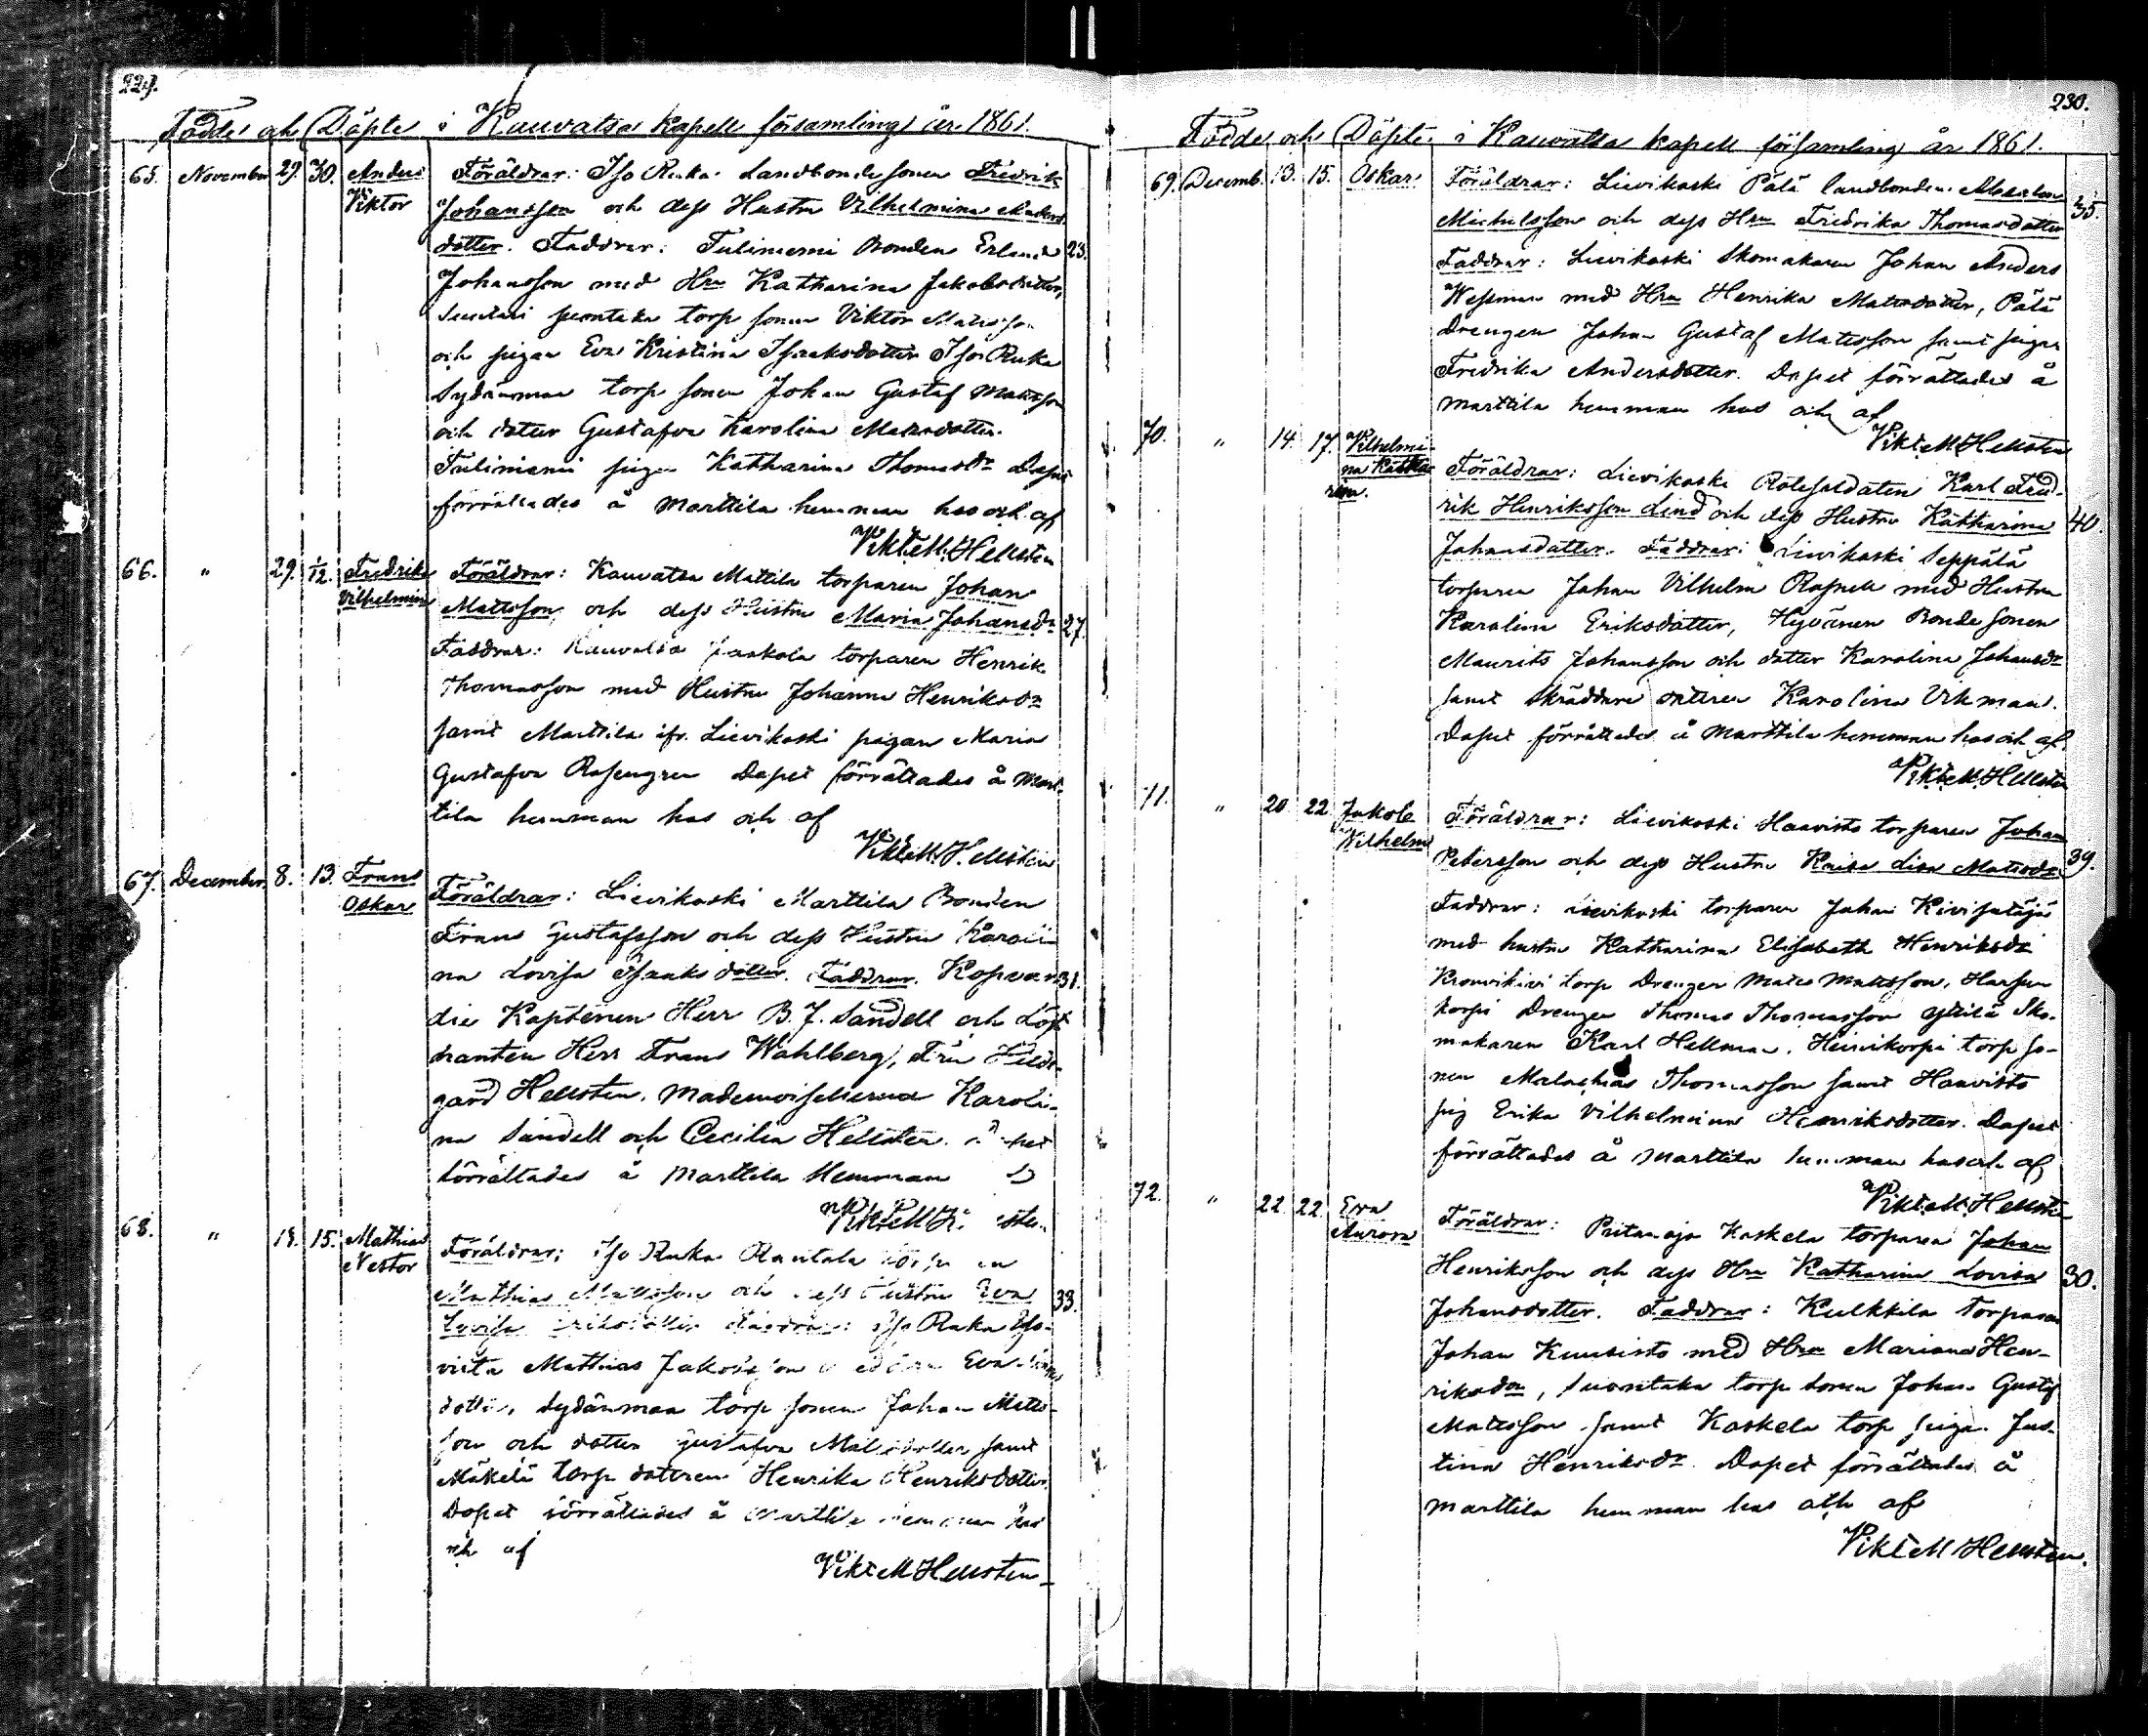 229.
Födde och Döpte i Kauvatsa Kapell församling år 1861.
65. November 29. 30. Anders Viktor
Föräldrar: Iso Ruka Landbondesonen Fredrik
Johansson och dess Hustru Vilhelmina Anders
dotter. Faddrar: Tuliniemi Bonden Erland 23.
Johansson med Hru Katharina Jakobsdotter,
torp sonen Viktor Matsson
och pigan Eva Kristina Isaksdotter Iso Ruka
Sydänmaa torp sonen Johan Gustaf Matsson
och dotter Gustafva Karolina Matsdotter.
Tuliniemi pigan Katharina Thomasdr Dopet
förrättades å Marttila hemman hos och af
Vikt. M. Hellsten
66. " 29. 1/12. Fredrika Vilhelmina
Föräldrar: Kauvatsa Mattila torparen Johan
Mattsson och dess Hustru Maria Johansdr 27.
Faddrar: Kauvatsa Jaakola torparen Henrik
Thomasson med Hustru Johanna Henriksdr
samt Marttila ifr. Lievikoski pigan Maria
Gustafva Rosengren Dopet förrättades å Mart-
tila hemman hos och af
Vikt. M. Hellsten
67. December 8. 13. Frans Oskar
Föräldrar: Lievikoski Marttila Bonden
Frans Gustafsson och dess Hustru Karoli-
na Lovisa Isaksdotter. Faddrar. Kopvar- 31.
die Kaptenen Herr B. J. Sandell och Löjt
nanten Herr Frans Wahlberg, Fru Hilde-
gard Hellsten. Mademoisellerna Karoli-
na Sandell och Cecilia Hellsten. Dopet
förrättades å Marttila Hemman
Vikt. M. H
68. " 15. Mathias Nestor
Föräldrar: Iso Ruka Rantala
Mathias Mattsson och dess Hustru Eva 33.
Lovisa Eriksdotter Faddrar: Iso Ruka
Mathias Jakobsson Eva
dotter, Sydänmaa torp sonen Johan Matts-
son och dotter Gustafva Matsdotter samt
Mäkelä torp dottren Henrika Henriksdotter.
Dopet förrättades å Marttila hemman hos
och af
Vikt M Hellsten
230.
Födde och Döpte i Kauvatsa kapell församling år 1861.
69. Decemb. 13. 15. Oskar
Föräldrar: Lievikoski Pälä landbonden 35.
Michelsson och dess Hru Fredrika Thomasdotter
Faddrar: Lievikoski Skomakaren Johan Anders
Wessman med Hru Henrika Matsdotter, Pälä
Drengen Johan Gustaf Matsson samt pigan
Fredrika Andersdotter. Dopet förrättades å
Marttila hemman hos och af
Vikt. M. Hellsten
70. " 14. 17. Vilhelmi-
na Katha
rina.
Föräldrar: Lievikoski Rotesoldaten Karl Fred-
rik Henriksson Lind och dess Hustru Katharina 40.
Johansdotter. Faddrar: Lievikoski Seppälä
torparen Johan Vilhelm med Hustru
Karolina Eriksdotter, Hyvänen Bondesonen
Maurits Johansson och dotter Karolina Johansdr
samt skräddare dottren Karolina Vikman.
Dopet förrättades å Marttila hemman hos och af.
Vikt. M. Hellsten
71. " 20. 22. Jakob Wilhelm
Föräldrar: Lievikoski Haavisto torparen Johan
Petersson och dess Hustru Kaisa Lisa Matsdr. 39.
Faddrar: Lievikoski torparen Johan
med hustru Katharina Elisabeth Henriksdr
torp Drengen Mats Mattsson,
korpi Drengen Thomas Thomasson Yttilä Sko-
makaren Karl Hellman, Heinikorpi torp so-
nen Malachias Thomasson samt Haavisto
pig Erika Vilhelmina Henriksdotter. Dopet
förrättades å Marttila hemman hos och af
Vikt. M. Hellsten
72. " 22. 22. Eva Aurora
Föräldrar: Koskela torparen Johan
Henriksson och dess Hru Katharina Lovisa 30.
Johansdotter. Faddrar: Kulkkila Torparen
Johan Kuusisto med Hru Mariana Hen-
riksdr, Suontaka torp sonen Johan Gustaf
Matsson samt Koskela torp pigan Jus-
tina Henriksdr. Dopet förrättades å
Marttila hemman hos och af
Vikt M Hellsten.